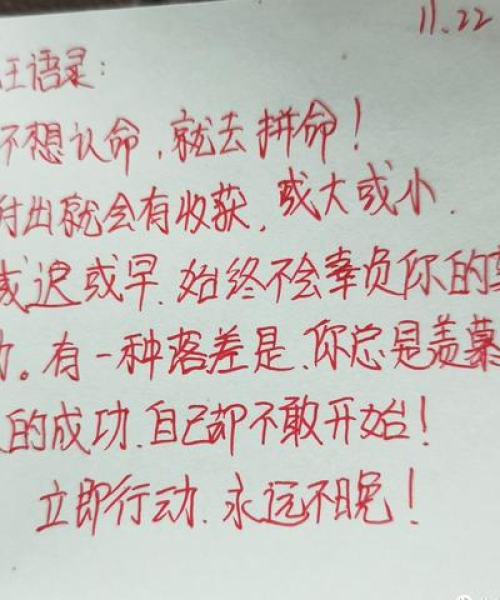 11.22
王语录:
不想认命,就去拼命!
付出就会有收获,或大或小.
或迟或早.始终不会辜负你的
。有一种落差是.你总是羡慕
的成功.自己却不敢开始!
立即行动.永远不晚!